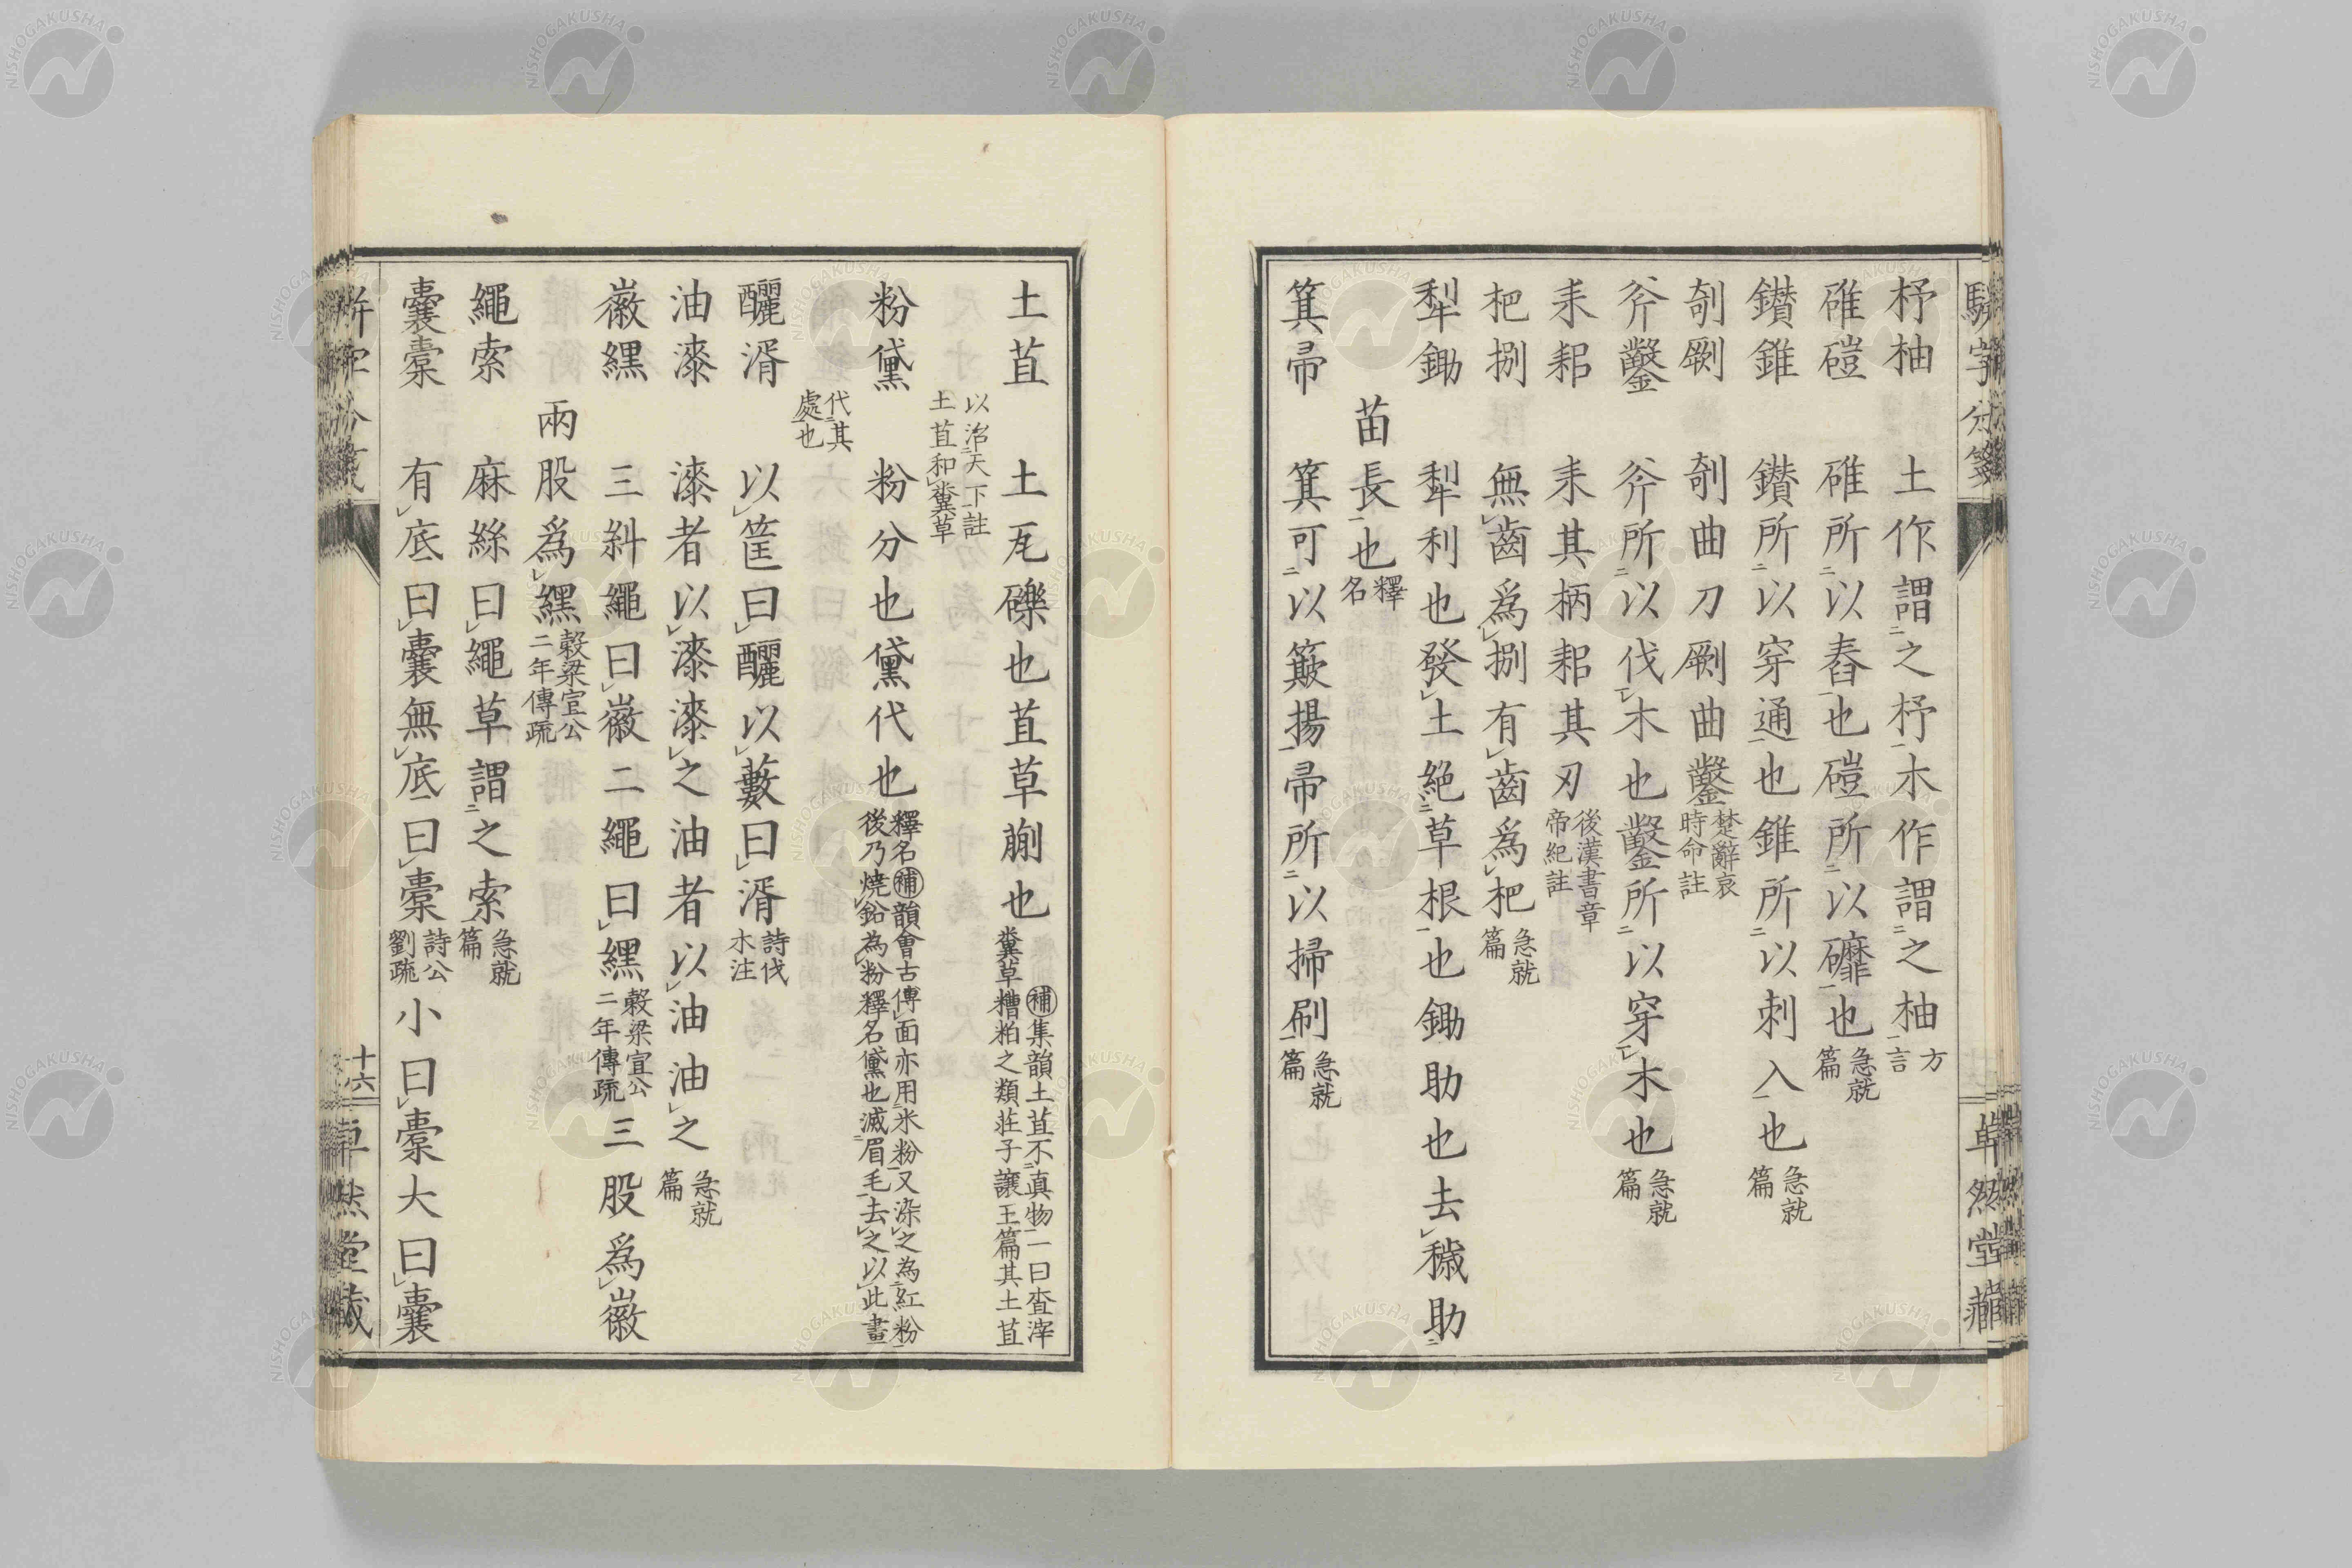 杼柚 土作謂之杼木作謂之柚方言
碓磑 碓所以舂也磑所以䃺也急就篇
鑚錐 鑚所以穿通也錐所以刺入也急就篇
剞劂 剞曲刀劂曲鑿楚辭哀時命註
斧鑿 斧所以伐木也鑿所以穿木也急就篇
耒耜 耒其柄耜其刃後漢書章帝紀註
杷捌 無齒爲捌有齒爲杷急就篇
犂鋤 犂利也發土絕草根也鋤助也去穢助
苗長也釋名
箕帚 箕可以簸揚帚所以掃刷急就篇
駢字分箋
卓然堂藏
土苴 土瓦礫也苴草蒯也補集韻土苴不真物一曰査滓糞草糟粕之類莊子讓王篇其土苴
以治天下註土苴和糞草
粉黛 粉分也黛代也釋名補韻會古傅面亦用米粉又染之為紅粉後乃燒鉛為粉釋名黛也滅眉毛去之以此畫
代其處也
釃湑 以筐曰釃以藪曰湑詩伐木注
油漆 漆者以漆漆之油者以油油之急就篇
徽纆 三糾繩曰徽二繩曰纆穀梁宣公二年傳疏三股爲徽
兩股爲纆穀梁宣公二年傳疏
繩索 麻絲曰繩草謂之索急就篇
囊橐 有底曰囊無底曰橐詩公劉疏小曰橐大曰囊
十六
卓然堂藏